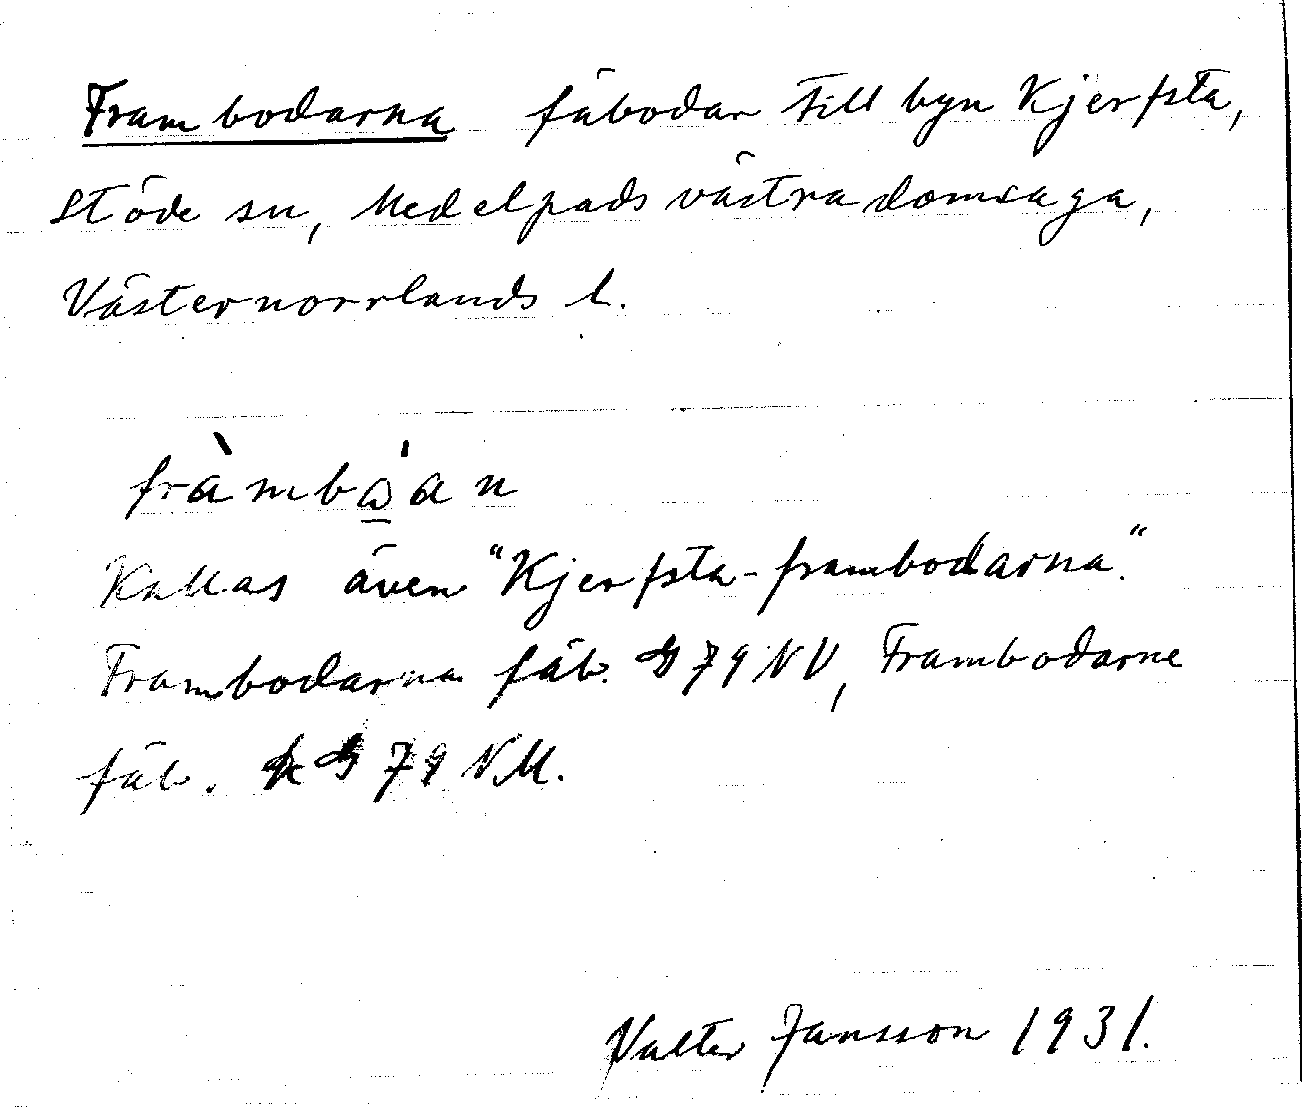 Frambodarna fäbodar till byn Kjerfsta,
Stöde sn, Medelpads västra domsaga,
Västernorrlands l.
fràmbɷ̀an
Kallas även "Kjerfsta-frambodarna".
Frambodarna fäb. 79 NV, Frambodarne
fäb. 79 NM.
Valter Jansson 1931.